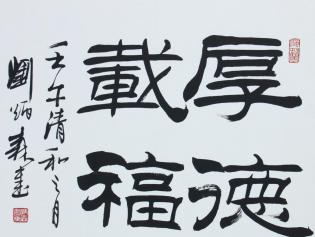 厚德
載福
壬午清和之月
劉炳森書